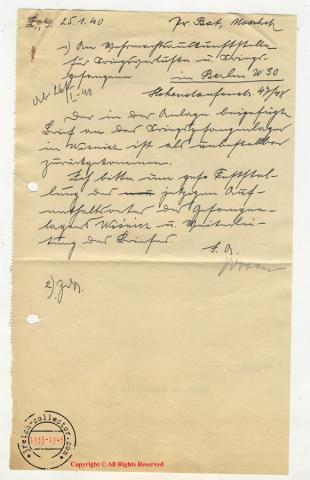 25.1.40
1) An Wehrmachtauskunftstelle
für Kriegsverluste u. Kriegs-
gefangene in Berlin W 30
Hohenstaufenstr. 47/48
Der in der Anlage beigefügte
Brief an das Kriegsgefangenenlager
in Wisnicz ist als unbestellbar
zurückgekommen.
Ich bitte um gefl. Feststel-
lung des jetzigen Auf-
enthaltsortes des Gefangenen-
lagers Wisnicz u. Weiterlei-
tung des Briefes.
2) ZdA.
*reich-collector.com*
1933-1945
Copyright © All Rights Reserved